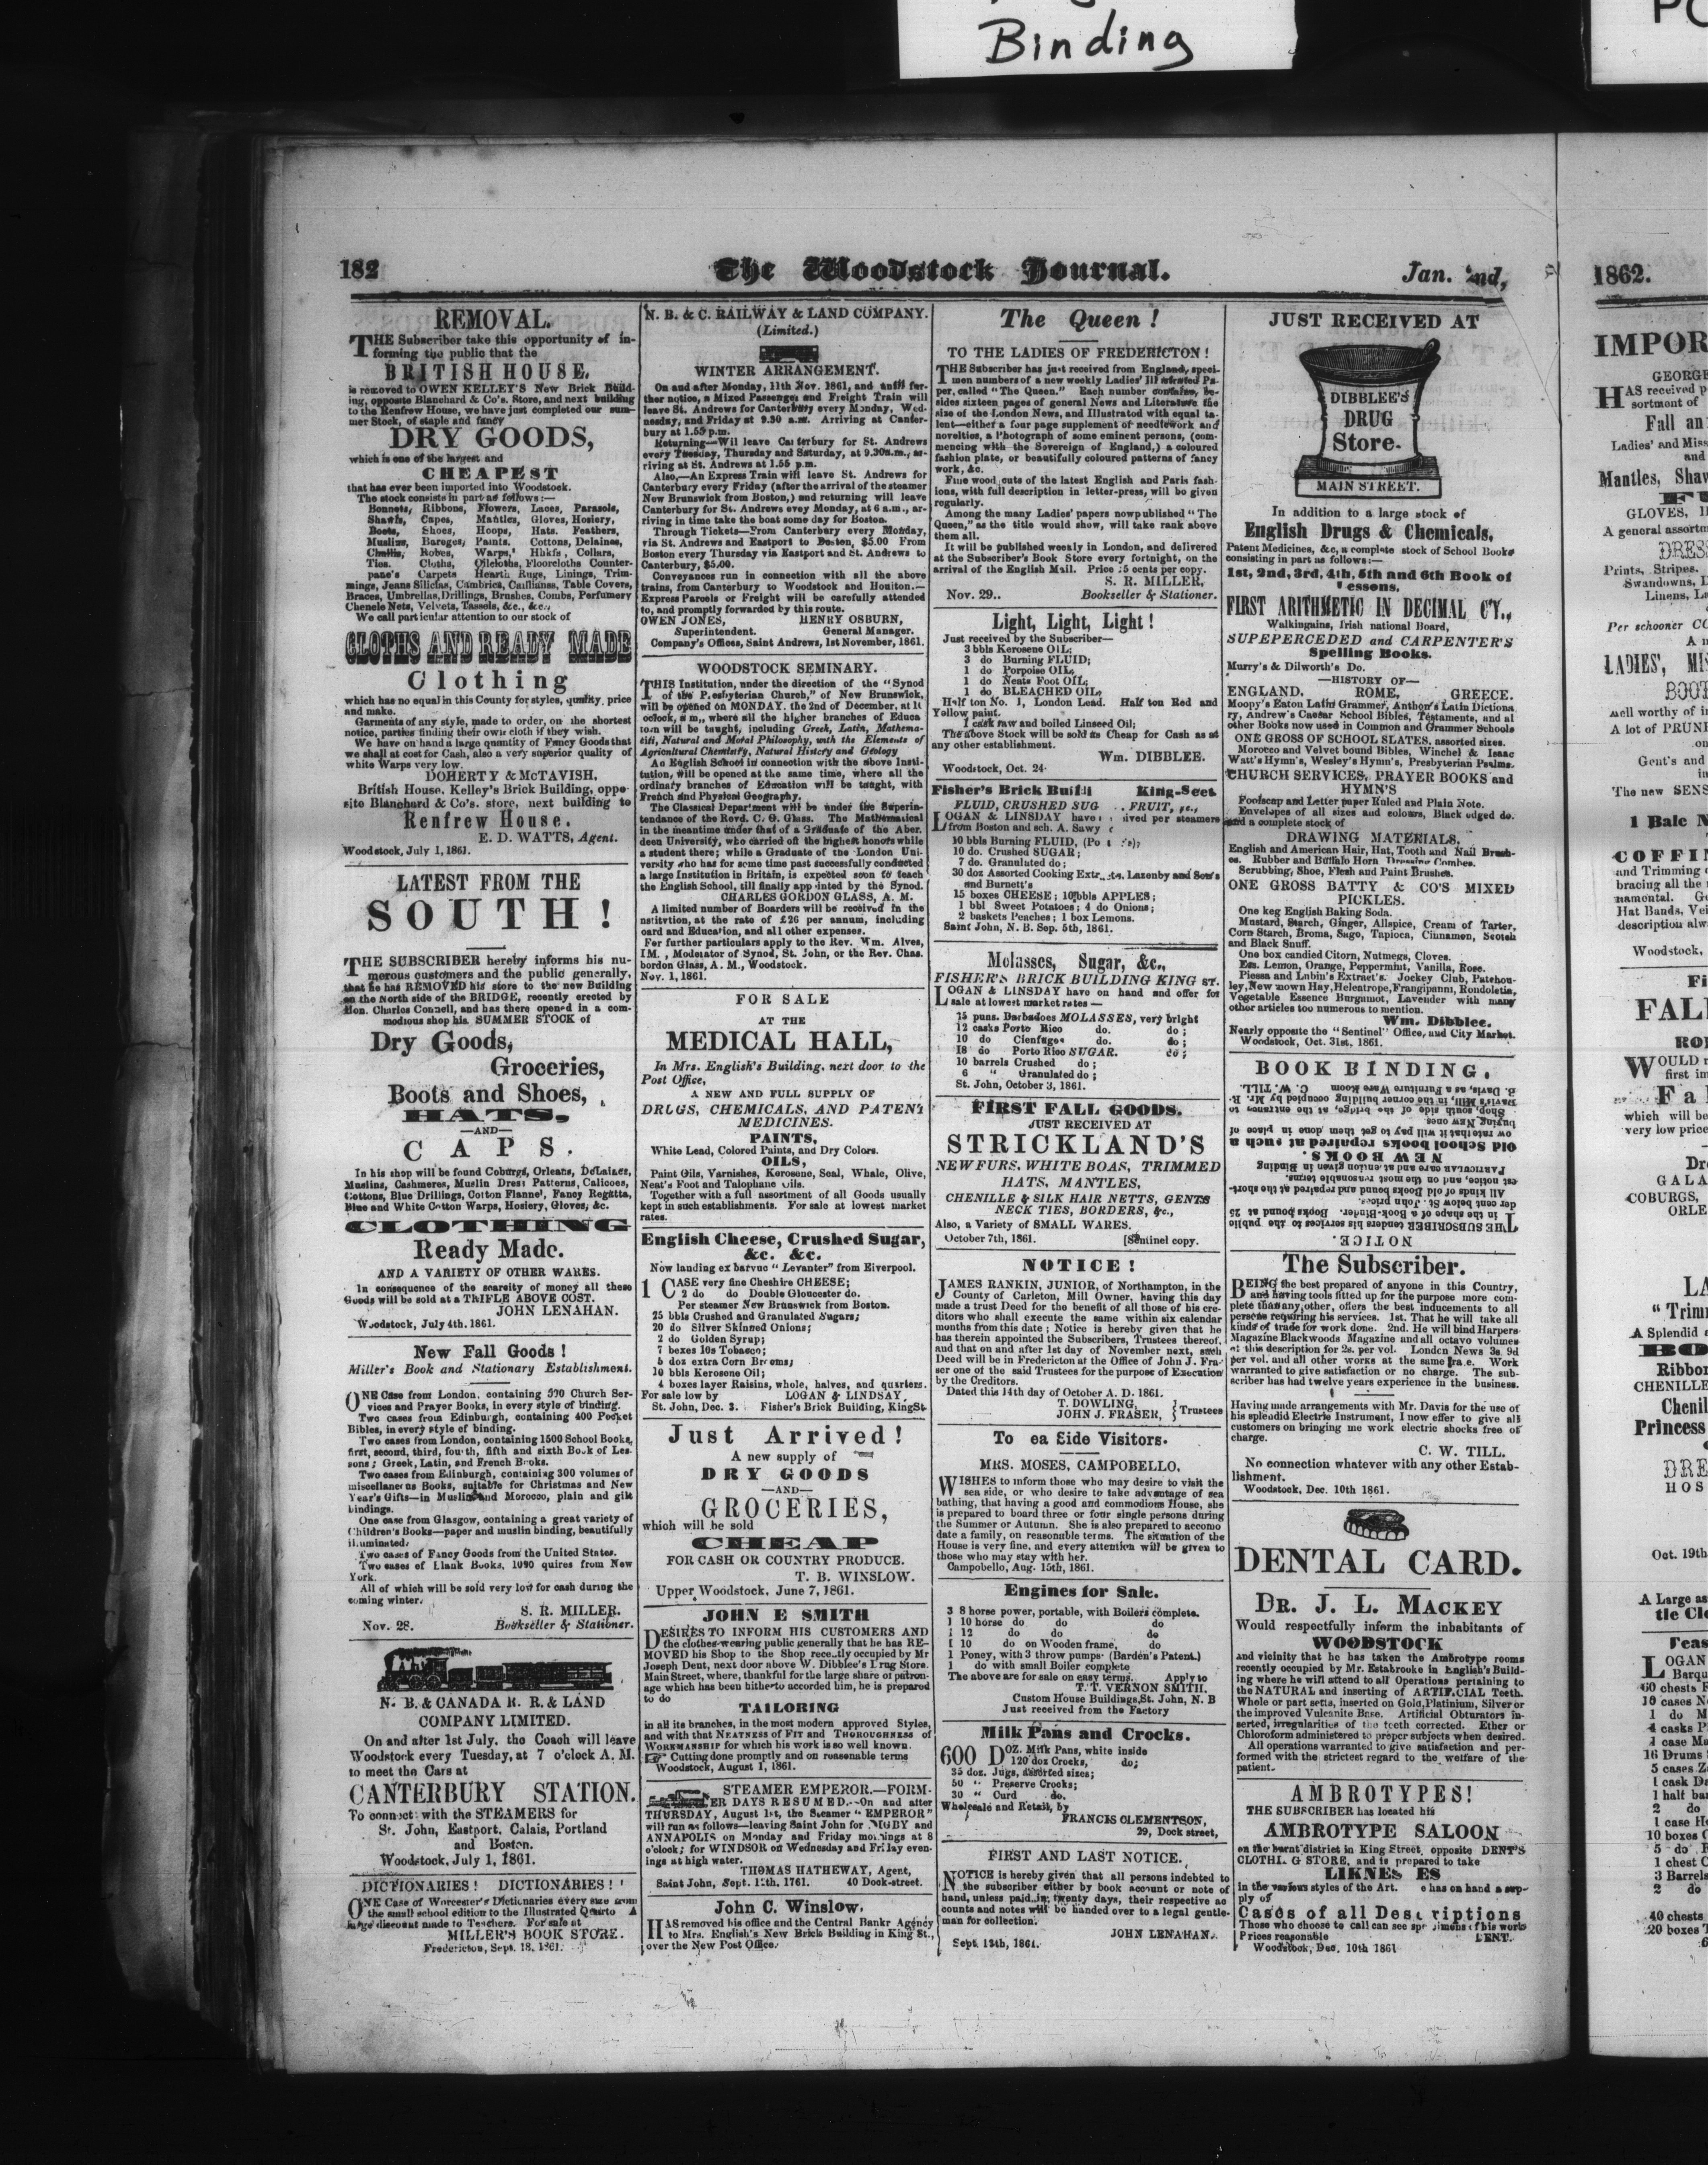 Binding
182
The Woodstock Journal.
Jan. 2nd,
REMOVAL.
THE Subscriber take this opportunity of in-
forming the public that the
BRITISH HOUSE,
is removed to OWEN KELLEY'S New Brick Build-
ing, opposite Blanchard & Co's. Store, and next building
to the Renfrew House, we have just completed our sum-
mer Stock, of staple and fancy
DRY GOODS,
which is one of the largest and
CHEAPEST
that has ever been imported into Woodstock.
The stock consists in part as follows:—
Bonnets, Ribbons, Flowers, Laces, Parasols,
Shawls, Capes, Mantles, Gloves, Hosiery,
Boots, Shoes, Hoops, Hats. Feathers,
Muslins, Bareges, Paints. Cottons, Delaines,
Challis, Robes, Warps, Hhkfs, Collars,
Ties. Cloths, Oilcloths, Floorcloths Counter-
pane's Carpets Hearth Rugs, Linings, Trim-
mings, Jeans Silicias, Cambrics, Cantianas, Table Covers,
Braces, Umbrellas, Drillings, Brushes, Combs, Perfumery
Chenele Nets, Velvets, Tassels, &c., &c.,
We call particular attention to our stock of
CLOTHS AND READY MADE
Clothing
which has no equal in this County for styles, quality, price
and make.
Garments of any style, made to order, on the shortest
notice, parties finding their own cloth if they wish.
We have on hand a large quantity of Fancy Goods that
we shall at cost for Cash, also a very superior quality of
white Warps very low.
DOHERTY & McTAVISH,
British House, Kelley's Brick Building, oppo-
site Blanchard & Co's. store, next building to
Renfrew House.
E. D. WATTS, Agent.
Woodstock, July 1, 1861.
LATEST FROM THE
SOUTH!
THE SUBSCRIBER hereby informs his nu-
merous customers and the public generally,
that he has REMOVED his store to the new Building
on the North side of the BRIDGE, recently erected by
Hon. Charles Connell, and has there opened in a com-
modious shop his SUMMER STOCK of
Dry Goods,
Groceries,
Boots and Shoes,
HATS,
—AND—
CAPS.
In his shop will be found Coburgs, Orleans, DeLaines,
Muslins, Cashmeres, Muslin Dress Patterns, Calicoes,
Cottons, Blue Drillings, Cotton Flannel, Fancy Regatta,
Blue and White Cotton Warps, Hosiery, Gloves, &c.
CLOTHING
Ready Made.
AND A VARIETY OF OTHER WARES.
In consequence of the scarcity of money all these
Goods will be sold at a TRIFLE ABOVE COST.
JOHN LENAHAN.
Woodstock, July 4th. 1861.
New Fall Goods!
Miller's Book and Stationary Establishment.
ONE Case from London. containing 500 Church Ser-
vices and Prayer Books, in every style of binding.
Two cases from Edinburgh, containing 400 Pocket
Bibles, in every style of binding.
Two cases from London, containing 1500 School Books,
first, second, third, fourth, fifth and sixth Book of Les-
sons; Greek, Latin, and French Books.
Two cases from Edinburgh, containing 300 volumes of
miscellaneous Books, suitable for Christmas and New
Year's Gifts—in Muslin and Morocco, plain and gilt
bindings.
One case from Glasgow, containing a great variety of
Children's Books—paper and muslin binding, beautifully
illuminated.
Two cases of Fancy Goods from the United States.
Two cases of Blank Books, 1000 quires from New
York.
All of which will be sold very low for cash during the
coming winter.
S. R. MILLER.
Nov. 28. Bookseller & Stationer.
N. B. & CANADA R. R. & LAND
COMPANY LIMITED.
On and after 1st July. the Coach will leave
Woodstock every Tuesday, at 7 o'clock A. M.
to meet the Cars at
CANTERBURY STATION.
To connect with the STEAMERS for
St. John, Eastport. Calais, Portland
and Boston.
Woodstock, July 1, 1861.
DICTIONARIES! DICTIONARIES!
ONE Case of Worcester's Dictionaries every size from
the small school edition to the Illustrated Quarto A
large discount made to Teachers. For sale at
MILLER'S BOOK STORE.
Fredericton, Sept. 18, 1861.
N. B. & C. RAILWAY & LAND COMPANY.
(Limited.)
WINTER ARRANGEMENT.
On and after Monday, 11th Nov. 1861, and until fur-
ther notice, a Mixed Passenger and Freight Train will
leave St. Andrews for Canterbury every Monday, Wed-
nesday, and Friday at 9.30 a.m. Arriving at Canter-
bury at 1.55 p.m.
Returning—Wil leave Canterbury for St. Andrews
every Tuesday, Thursday and Saturday, at 9.30a.m., ar-
riving at St. Andrews at 1.55 p.m.
Also,—An Express Train will leave St. Andrews for
Canterbury every Friday (after the arrival of the steamer
New Brunswick from Boston,) and returning will leave
Canterbury for St. Andrews evey Monday, at 6 a.m., ar-
riving in time take the boat some day for Boston.
Through Tickets—From Canterbury every Monday,
via St. Andrews and Eastport to Boston, $5.00 From
Boston every Thursday via Eastport and St. Andrews to
Canterbury, $5.00.
Conveyances run in connection with all the above
trains, from Canterbury to Woodstock and Houlton.—
Express Parcels or Freight will be carefully attended
to, and promptly forwarded by this route.
OWEN JONES, HENRY OSBURN,
Superintendent. General Manager.
Company's Offices, Saint Andrews, 1st November, 1861.
WOODSTOCK SEMINARY.
THIS Institution, under the direction of the "Synod
of the Presbyterian Church," of New Brunswick,
will be opened on MONDAY. the 2nd of December, at 10
oclock, a m., where all the higher branches of Educa
toin will be taught, including Greek, Latin, Mathema-
tifi, Natural and Moral Philosophy, with the Elements of
Agricultural Chemistry, Natural History and Geology
An English School in connection with the above Insti-
tution, will be opened at the same time, where all the
ordinary branches of Education will be taught, with
French and Physical Geography.
The Classical Department will be under the Superin-
tendance of the Revd. C. G. Glass. The Mathematical
in the meantime under that of a Graduate of the Aber.
deen University, who carried off the highest honors while
a student there; while a Graduate of the London Uni-
versity who has for some time past successfully conducted
a large Institution in Britain, is expected soon to teach
the English School, till finally appointed by the Synod.
CHARLES GORDON GLASS, A. M.
A limited number of Boarders will be received in the
nstitvtion, at the rate of £26 per annum, including
oard and Education, and all other expenses.
For further particulars apply to the Rev. Wm. Alves,
IM. , Moderator of Synod, St. John, or the Rev. Chas.
bordon Glass, A. M., Woodstock.
Nov. 1, 1861.
FOR SALE
AT THE
MEDICAL HALL,
In Mrs. English's Building, next door to the
Post Office,
A NEW AND FULL SUPPLY OF
DRUGS, CHEMICALS, AND PATENT
MEDICINES.
PAINTS,
White Lead, Colored Paints, and Dry Colors.
OILS,
Paint Oils, Varnishes, Kerosene, Seal, Whale, Olive,
Neat's Foot and Talophane Oils.
Together with a full assortment of all Goods usually
kept in such establishments. For sale at lowest market
rates.
English Cheese, Crushed Sugar,
&c. &c.
Now landing ex barvue "Levanter" from Eiverpool.
1 CASE very fine Cheshire CHEESE;
2 do do Double Gloucester do.
Per steamer New Brunswick from Boston.
25 bbls Crushed and Granulated Sugars;
20 do Silver Skinned Onions;
2 do Golden Syrup;
7 boxes 10s Tobacco;
5 doz extra Corn Brooms;
10 bbls Kerosene Oil;
4 boxes layer Raisins, whole, halves, and quarters.
For sale low by LOGAN & LINDSAY,
St. John, Dec. 3. Fisher's Brick Building, KingSt.
Just Arrived!
A new supply of
DRY GOODS
—AND—
GROCERIES,
which will be sold
CHEAP
FOR CASH OR COUNTRY PRODUCE.
T. B. WINSLOW.
Upper Woodstock, June 7, 1861.
JOHN E SMITH
DESIRES TO INFORM HIS CUSTOMERS AND
the clothes-wearing public generally that he has RE-
MOVED his Shop to the Shop recently occupied by Mr
Joseph Dent, next door above W. Dibblee's Drug Store.
Main Street, where, thankful for the large share of patron-
age which has been hitherto accorded him, he is prepared
to do
TAILORING
in all its branches, in the most modern approved Styles,
and with that NEATNESS OF FIT and THOROUGHNESS of
WORKMANSHIP for which his work is so well known.
☞ Cutting done promptly and on reasonable terms
Woodstock, August 1, 1861.
STEAMER EMPEROR.—FORM-
ER DAYS RESUMED.—On and after
THURSDAY, August 1st, the Steamer "EMPEROR"
will run as follows—leaving Saint John for DIGBY and
ANNAPOLIS on Monday and Friday mornings at 8
o'clock; for WINDSOR on Wednesday and Friday even-
ings at high water.
THOMAS HATHEWAY, Agent,
Saint John, Sept. 12th. 1761. 40 Dock-street.
John C. Winslow,
HAS removed his office and the Central Bankr Agency
to Mrs. English's New Brick Building in King St.,
over the New Post Office.
The Queen!
TO THE LADIES OF FREDERICTON!
THE Subscriber has just received from England, speci-
men numbers of a new weekly Ladies' Illustrated Pa-
per, called "The Queen." Each number contains, be-
sides sixteen pages of general News and Literature the
size of the London News, and Illustrated with equal ta-
lent—either a four page supplement of needlework and
novelties, a Photograph of some eminent persons, (com-
mencing with the Sovereign of England,) a coloured
fashion plate, or beautifully coloured patterns of fancy
work, &c.
Fine wood cuts of the latest English and Paris fash-
ions, with full description in letter-press, will be given
regularly.
Among the many Ladies' papers now published "The
Queen," as the title would show, will take rank above
them all.
It will be published weekly in London, and delivered
at the Subscriber's Book Store every fortnight, on the
arrival of the English Mail. Price 15 cents per copy.
S. R. MILLER,
Nov. 29.. Bookseller & Stationer.
Light, Light, Light!
Just received by the Subscriber—
3 bbls Kerosene OIL;
3 do Burning FLUID;
1 do Porpoise OIL,
1 do Neats Foot OIL;
1 do BLEACHED OIL,
Half ton No. 1, London Lead. Half ton Red and
Yellow paint.
1 cask raw and boiled Linseed Oil;
The above Stock will be sold as Cheap for Cash as at
any other establishment.
Wm. DIBBLEE.
Woodstock, Oct. 24.
Fisher's Brick Buildi King-Seet
FLUID, CRUSHED SUG FRUIT, &c.,
LOGAN & LINSDAY have ived per steamers
from Boston and sch. A. Sawy
10 bbls Burning FLUID,
10 do. Crushed SUGAR;
7 do. Granulated do;
30 doz Assorted Cooking Extr Lazenby and Son's
and Burnett's
15 boxes CHEESE; 10 bbls APPLES;
1 bbl Sweet Potatoes; 4 do Onions;
2 baskets Peaches; 1 box Lemons.
Saint John, N. B. Sep. 5th, 1861.
Molasses, Sugar, &c.,
FISHER'S BRICK BUILDING KING ST.
LOGAN & LINSDAY have on hand and offer for
sale at lowest market rates—
15 puns. Barbadoes MOLASSES, very bright
12 casks Porto Rico do. do;
10 do Cienfugos do. do;
18 do Porto Rico SUGAR. do;
10 barrels Crushed do;
6 " Granulated do;
St. John, October 3, 1861.
FIRST FALL GOODS.
JUST RECEIVED AT
STRICKLAND'S
NEW FURS. WHITE BOAS, TRIMMED
HATS, MANTLES,
CHENILLE & SILK HAIR NETTS, GENTS
NECK TIES, BORDERS, &c.,
Also, a Variety of SMALL WARES.
October 7th, 1861. [Sentinel copy.
NOTICE!
JAMES RANKIN, JUNIOR, of Northampton, in the
County of Carleton, Mill Owner, having this day
made a trust Deed for the benefit of all those of his cre-
ditors who shall execute the same within six calendar
months from this date; Notice is hereby given that he
has therein appointed the Subscribers, Trustees thereof,
and that on and after 1st day of November next, such
Deed will be in Fredericton at the Office of John J. Fra-
ser one of the said Trustees for the purpose of Execution
by the Creditors.
Dated this 14th day of October A. D. 1861.
T. DOWLING,
JOHN J. FRASER, } Trustees
To ea Side Visitors.
MRS. MOSES, CAMPOBELLO,
WISHES to inform those who may desire to visit the
sea side, or who desire to take advantage of sea
bathing, that having a good and commodious House, she
is prepared to board three or four single persons during
the Summer or Autumn. She is also prepared to accomo
date a family, on reasonable terms. The situation of the
House is very fine, and every attention will be given to
those who may stay with her.
Campobello, Aug. 15th, 1861.
Engines for Sale.
3 8 horse power, portable, with Boilers complete.
1 10 horse do do do
1 12 do do do
1 10 do on Wooden frame, do
1 Poney, with 3 throw pumps (Barden's Patent.)
1 do with small Boiler complete
The above are for sale on easy terms. Apply to
T. T. VERNON SMITH.
Custom House Buildings, St. John, N. B
Just received from the Factory
Milk Pans and Crocks.
600 DOZ. Milk Pans, white inside
120 doz Crocks, do;
35 doz. Jugs, assorted sizes;
50 " Preserve Crocks;
30 " Curd do.
Wholesale and Retail, by
FRANCIS CLEMENTSON,
29, Dock street,
FIRST AND LAST NOTICE.
NOTICE is hereby given that all persons indebted to
the subscriber either by book account or note of
hand, unless paid in twenty days, their respective ac
counts and notes will be handed over to a legal gentle-
man for collection.
JOHN LENAHAN.
Sept. 12th, 1861.
JUST RECEIVED AT
DIBBLEE'S
DRUG
Store.
MAIN STREET.
In addition to a large stock of
English Drugs & Chemicals,
Patent Medicines, &c, a complete stock of School Books
consisting in part as follows:—
1st, 2nd, 3rd, 4th, 5th and 6th Book of
Lessons,
FIRST ARITHMETIC IN DECIMAL CY.,
Walkingains, Irish national Board,
SUPEPERCEDED and CARPENTER'S
Spelling Books.
Murry's & Dilworth's Do.
—HISTORY OF—
ENGLAND, ROME, GREECE.
Moopy's Eaton Latin Grammer, Anthon's Latin Dictiona
ry, Andrew's Caesar School Bibles, Testaments, and al
other Books now used in Common and Grammer Schools
ONE GROSS OF SCHOOL SLATES, assorted sizes.
Morocco and Velvet bound Bibles, Winchel & Isaac
Watt's Hymn's, Wesley's Hymn's, Presbyterian Psalms.
CHURCH SERVICES, PRAYER BOOKS and
HYMN'S
Foolscap and Letter paper Ruled and Plain Note.
Envelopes of all sizes and colours, Black edged do.
and a complete stock of
DRAWING MATERIALS,
English and American Hair, Hat, Tooth and Nail Brush-
es. Rubber and Buffalo Horn Dressing Combes.
Scrubbing, Shoe, Flesh and Paint Brushes.
ONE GROSS BATTY & CO'S MIXED
PICKLES.
One keg English Baking Soda.
Mustard, Starch, Ginger, Allspice, Cream of Tarter,
Corn Starch, Broma, Sago, Tapioca, Cinnamon, Scotch
and Black Snuff.
One box candied Citorn, Nutmegs, Cloves.
Ess. Lemon, Orange, Peppermint, Vanilla, Rose.
Piessa and Lubin's Extract's. Jockey Club, Patchou-
ley, New mown Hay, Helentrope, Frangipanni, Rondoletia,
Vegetable Essence Burgamot, Lavender with many
other articles too numerous to mention.
Wm. Dibblee.
Nearly opposite the "Sentinel" Office, and City Market.
Woodstock, Oct. 31st, 1861.
BOOK BINDING.
NOTICE.
THE SUBSCRIBER tenders his services to the public
in the shape of a Book-Binder. Books bound at 25
per cent below St. John prices.
All kinds of old Books bound and repaired at the short-
est notice, and on the most reasonable terms.
Particular care and attention given in Binding
NEW BOOKS.
Old School books repaired at such a
ow rate that it will pay to get them done in place of
buying New ones.
Shop, south side of the bridge, at the entrance to
Davis's Mill, in the corner building occupied by Mr. R.
B. Davis, as a Furniture Ware Room C. W. TILL.
The Subscriber.
BEING the best prepared of anyone in this Country,
and having tools fitted up for the purpose more com-
plete than any other, offers the best inducements to all
persons requiring his services. 1st. That he will take all
kinds of trade for work done. 2nd. He will bind Harpers
Magazine Blackwoods Magazine and all octavo volumes
of this description for 2s. per vol. London News 3s. 9d
per vol. and all other works at the same rate. Work
warranted to give satisfaction or no charge. The sub-
scriber has had twelve years experience in the business.
Having made arrangements with Mr. Davis for the use of
his splendid Electric Instrument, I now offer to give all
customers on bringing me work electric shocks free of
charge.
C. W. TILL.
No connection whatever with any other Estab-
lishment.
Woodstock, Dec. 10th 1861.
DENTAL CARD.
DR. J. L. MACKEY
Would respectfully inform the inhabitants of
WOODSTOCK
and vicinity that he has taken the Ambrotype rooms
recently occupied by Mr. Estabrooke in English's Build-
ing where he will attend to all Operations pertaining to
the NATURAL and inserting of ARTIFICIAL Teeth.
Whole or part setts, inserted on Gold, Platinium, Silver or
the improved Vulcanite Base. Artificial Obturators in-
serted, irregularities of the teeth corrected. Ether or
Chloroform administered to proper subjects when desired.
All operations warranted to give satisfaction and per-
formed with the strictest regard to the welfare of the
patient.
AMBROTYPES!
THE SUBSCRIBER has located his
AMBROTYPE SALOON
on the burnt district in King Street, opposite DENT'S
CLOTHI. G STORE, and is prepared to take
LIKNES ES
in the various styles of the Art. e has on hand a sup-
ply of
Cases of all Descriptions
Those who choose to call can see specimens of his work
Prices reasonable LENT.
Woodstock, Dec. 10th 1861
1862.
IMPOR
GEORGE
HAS received p
sortment of
Fall an
Ladies' and Miss
and
Mantles, Shaw
GLOVES, H
A general assortm
DRESS
Prints, Stripes,
Swandowns, D
Linens, La
Per schooner CO
A n
LADIES', MI
BOOT
well worthy of in
A lot of PRUNE
on
Gent's and
in
The new SENS
1 Bale N
COFFIN
and Trimming
bracing all the
namental. G
Hat Bands, Vei
description alw
Woodstock,
Fi
FALL
WOULD r
first im
Fa
which will be
very low price
Dr
GALA
COBURGS,
ORLE
LA
"Trim
A Splendid
BO
Ribbon
CHENILLE
Chenil
Princess
DRE
HOS
Oct. 19th
A Large as
tle Clo
Teas
LOGAN
Barqu
60 chests
10 cases N
1 do M
4 casks P
1 case Mu
16 Drums
5 cases Z
1 cask Da
1 half ba
2 do
1 case H
10 boxes C
5 do
1 chest C
3 Barrels
2 do
40 chests
20 boxes T